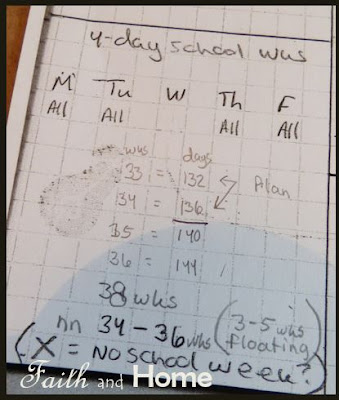 4-day school wks
M Tu W Th F
All All All All
wks days
33 = 132
34 = 136 Plan
35 = 140
36 = 144
38 wks
34-36 wks (3-5 wks floating)
(X = No school week?)
Faith and Home